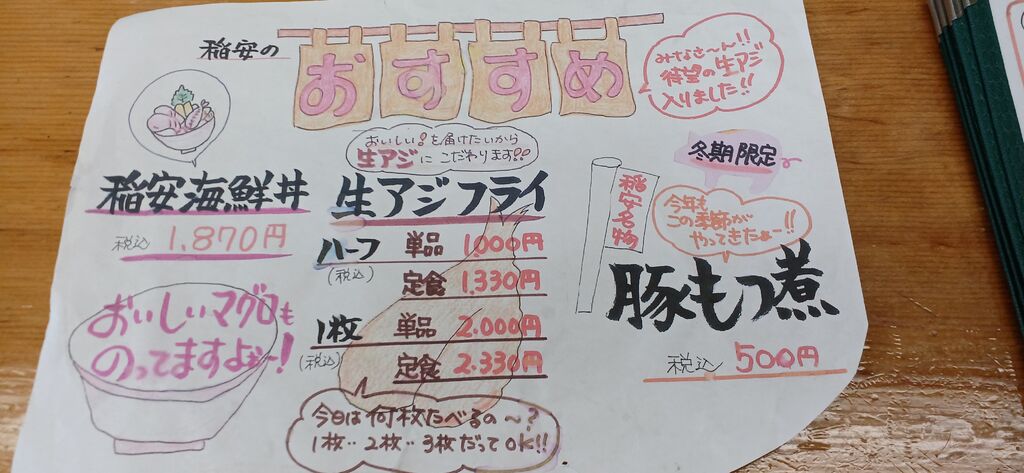 稲安の
おすすめ
みなさ〜ん!!
待望の生アジ
入りました!!
おいしい!を届けたいから
生アジにこだわります!!
稲安海鮮丼
税込 1,870円
おいしいマグロも
のってますよぉー!
生アジフライ
ハーフ 単品 1,000円
(税込)
定食 1,330円
1枚 単品 2,000円
(税込)
定食 2,330円
今日は何枚たべるの〜?
1枚‥2枚‥3枚だってOK!!
冬期限定
稲安名物
今年も
この季節が
やってきたよー!!
豚もつ煮
税込 500円